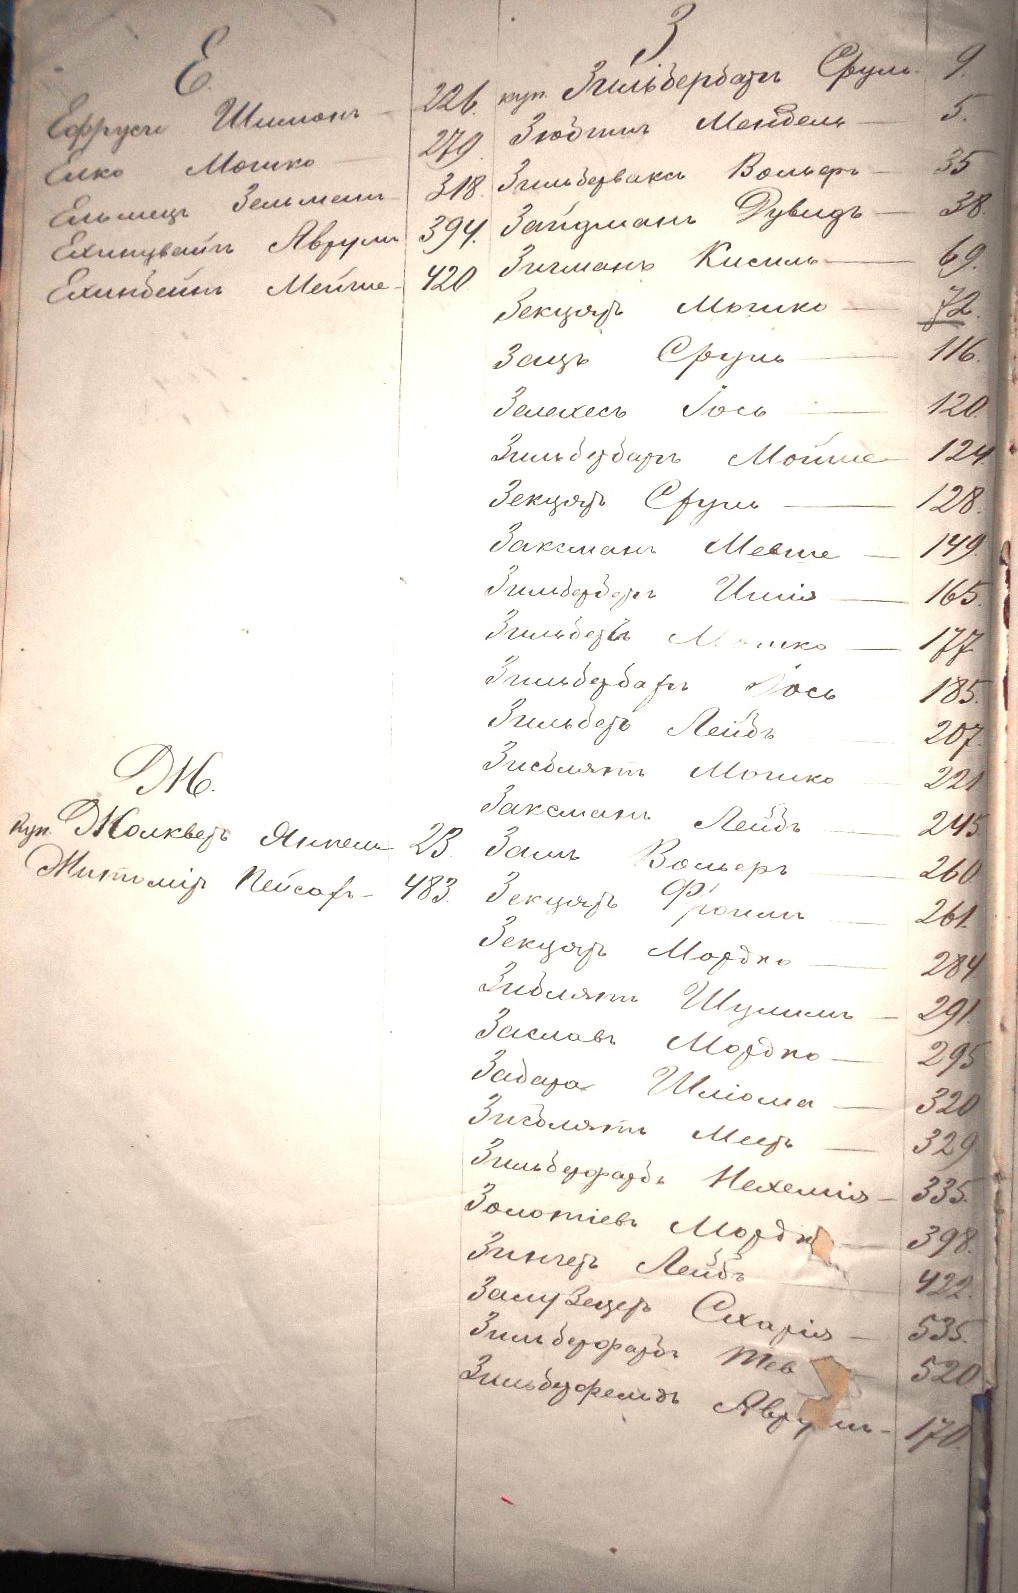 Е.
Ефруси Шлимонъ 226.
Елко Мошко 279.
Ельмецъ Зельманъ 318.
Аврумъ 394.
Мейше 420
Ж.
куп. Жолкверъ Янкель 23.
Житомiръ Пейсахъ 483.
З
куп. Зильбербахъ Сруль 9.
Мендель 5.
Зильберваксъ Вольфъ 35
Зайдманъ Дувидъ 38.
Зигманъ Кисиль 69.
Зекцеръ Мошко 72.
Зацъ Сруль 116.
Зелехесъ Iось 120.
Мойше 124.
Зекцеръ Сруль 128.
Заксманъ Мевше 149.
Зильберберъ 165.
Зильберъ Мошко 177
Iось 185.
Зильберъ Лейбъ 207.
Зисблятъ Мошко 221
Заксманъ Лейбъ 245.
Залъ Вольфъ 260
Зекцеръ Фроимъ 261.
Зекцеръ Мордко 284
Зисблятъ Шулимъ 291.
Заславъ Мордко 295
Забара Шлiома 320
Зисблятъ Меер 329
Зильберфарбъ Нехемiя 335.
Золотiевъ Мордк 398.
Зингеръ Лейбъ 422.
Сахарiя 535.
Зильберфарбъ Тев 520
Зильберфельдъ Аврумъ 170.